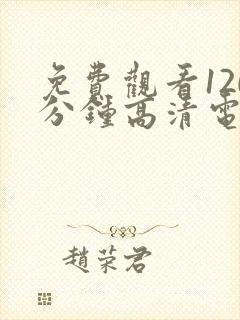 免費觀看12
分鐘高清電
趙荣君